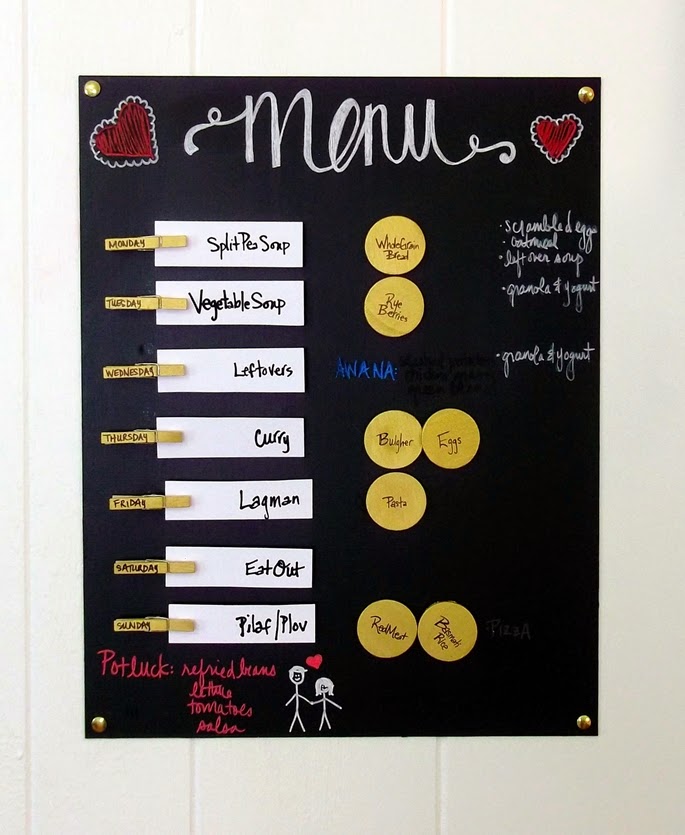 menu
MONDAY Split Pea Soup Whole Grain Bread
· scrambled eggs
· oatmeal
· leftover soup
TUESDAY Vegetable Soup Rye Berries
· granola & yogurt
WEDNESDAY Leftovers AWANA:
· granola & yogurt
THURSDAY Curry Bulgher Eggs
FRIDAY Lagman Pasta
SATURDAY Eat Out
SUNDAY Pilaf/Plov Red Meat Basmati Rice PIZZA
Potluck: refried beans
lettuce
tomatoes
salsa